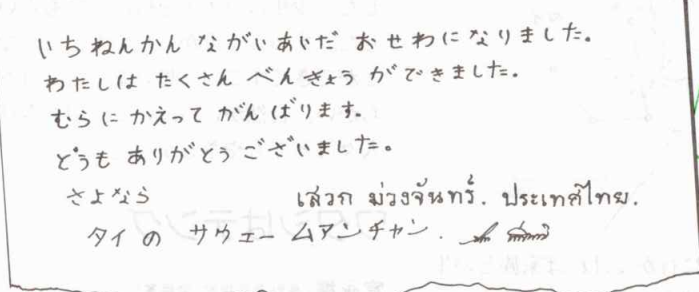 いちねんかん ながいあいだ おせわになりました。
わたしは たくさん べんきょうができました。
むらに かえって がんばります。
どうも ありがとう ございました。
さよなら เสวก ม่วงจันทร์. ประเทศไทย.
タイの サウェーームアンチャン.